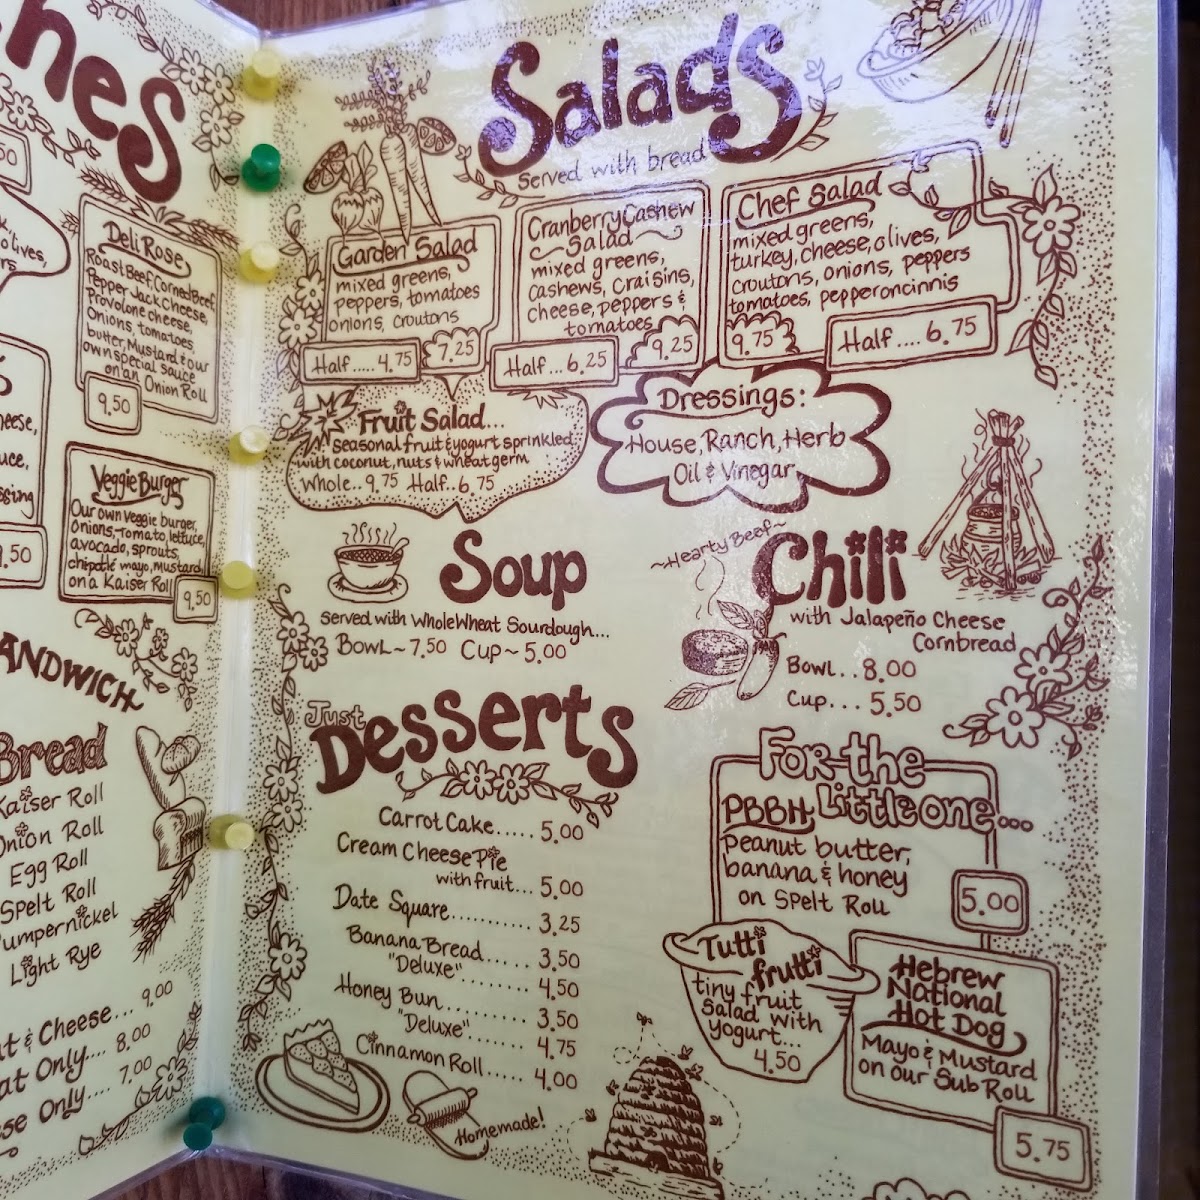 hes
50
olives,
Deli Rose
Roast Beef, Corned Beef
Pepper Jack Cheese,
Provolone cheese,
Onions, tomatoes
butter, Mustard & our
own special sauce
on an Onion Roll
9.50
9.50
Veggie Burger
Our own veggie burger,
onions, Tomato, lettuce,
avocado, sprouts,
chipotle mayo, Mustard,
on a Kaiser Roll
9.50
ANDWICH
Bread
Kaiser Roll
Onion Roll
Egg Roll
Spelt Roll
umpernickel
Light Rye
at & Cheese... 9.00
at Only.... 8.00
ese Only.... 7.00
Salads
Served with bread
Garden Salad
mixed greens,
peppers, tomatoes
onions, croutons
Half ..... 4.75
7.25
Cranberry Cashew
Salad
mixed greens,
cashews, craisins,
cheese, peppers &
tomatoes
Half ... 6.25
9.25
Chef Salad
mixed greens,
turkey, cheese, olives,
croutons, onions, peppers
tomatoes, pepperoncinnis
9.75
Half .... 6.75
Fruit Salad...
Seasonal fruit & yogurt sprinkled
with coconut, nuts & wheat germ
Whole.. 9.75 Half.. 6.75
Dressings:
House, Ranch, Herb
Oil & Vinegar
Soup
Served with Whole Wheat Sourdough...
Bowl ~ 7.50 Cup ~ 5.00
~Hearty Beef~
Chili
with Jalapeño Cheese
Cornbread
Bowl.. 8.00
Cup... 5.50
Just
Desserts
Carrot Cake..... 5.00
Cream Cheese Pie
with fruit... 5.00
Date Square........ 3.25
Banana Bread...... 3.50
"Deluxe" ...... 4.50
Honey Bun.......... 3.50
"Deluxe" ....... 4.75
Cinnamon Roll..... 4.00
Homemade!
For the
Little one...
PBBH
Peanut butter,
banana & honey
on Spelt Roll
5.00
Tutti
frutti
tiny fruit
salad with
yogurt...
4.50
Hebrew
National
Hot Dog
Mayo & Mustard
on our Sub Roll
5.75